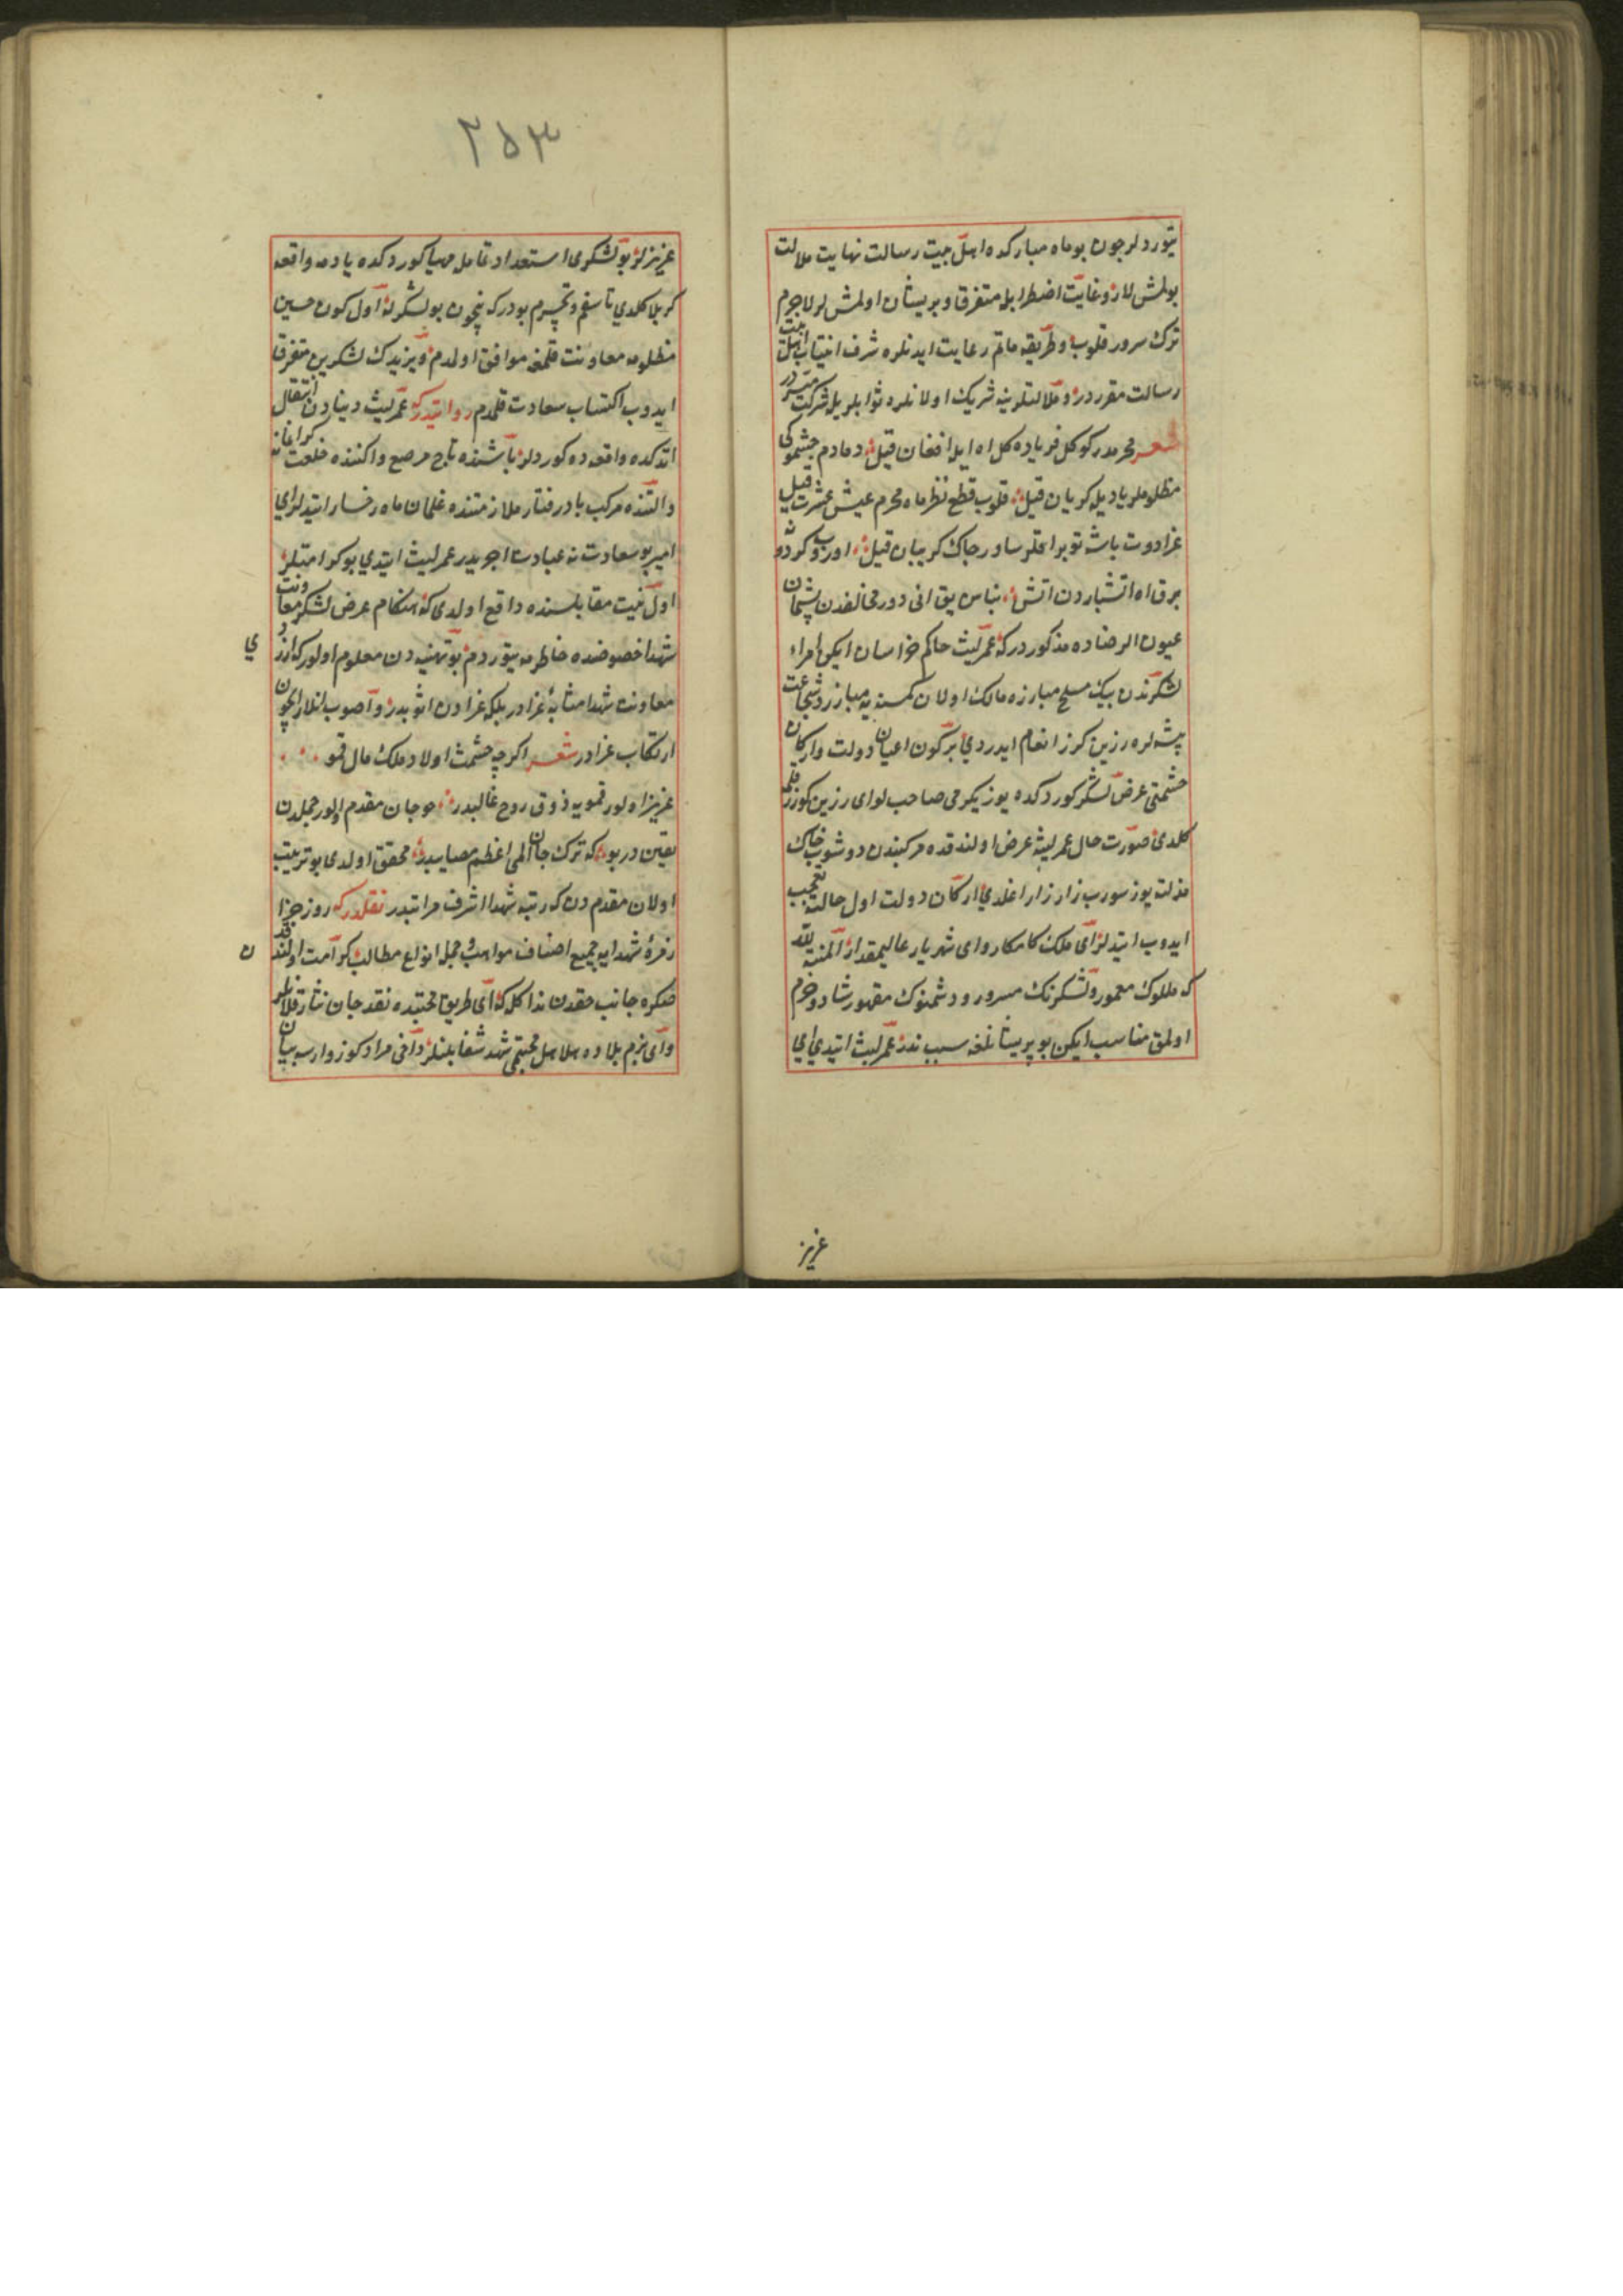 یتوردلر چون بو ماه مبارکده اهل بیت رسالت نهایت ملالت
بولمش لار و غایت اضطرابله متفرق و پریشان اولمش لر لاجرم
ترک سرور قلوب و طریقه ماتم رعایت ایدنلره شرف انتساب اهل بیت
رسالت مقرردر و ملالتلرینه شریک اولانلره ثوابلریله شرکت میسردر
شعر محرمدر کوکل فریاده کل اه ایله افغان قیل دمادم چشموکی
مظلوملر یادیله کریان قیل قلوب قطع نظر ماه محرم عیش عشرت قیل
عزادوت باشه توبراقلر ساور جاک کریبان قیل اوروب کردونه
برق اه اتشباردن اتش بناسن یق انی دور مخالفدن پشمان
عیون الرضاده مذکوردر که عمر لیث حاکم خراسان ایکن امراء
لشکرندن بیک مسلح مبارزه مالک اولان کمسنه یه مبارز و شجاعت
پیشه لره زرین کرز انعام ایدردی بر کون اعیان دولت و ارکان
حشمتی عرض لشکر کوردکده یوز یکرمی صاحب لوای زرین کرز قلمه
کلدی صورت حال عمر لیثه عرض اولندقده مرکبندن دوشوب خاک
مذلته یوز سورب زار زار اغلدی ارکان دولت اول حالته تعجب
ایدوب ایتدلر ای ملک کامکار و ای شهریار عالیمقدار المنة لله
که مللوک معمور و لشکرنک مسرور و دشمنوک مقهور شاد و خرم
اولمق مناسب ایکن بو پریشانلغه سبب ندر عمر لیث ایتدی ای
عزیز
۲۵۳
عزیزلر بو لشکری استعداد تمامله مهیا کوردکده یادمه واقعه
کربلا کلدی تاسفم و تحیرم بودر که نیچون بو لشکرله اول کون حسین
مظلومه معاونت قلمغه موافق اولمدم و یزیدک لشکرین متفرق
ایدوب اکتساب سعادت قلمدم روایتدر که عمر لیث دنیادن انتقال
اتدکده واقعه ده کوردلر باشنده تاج مرصع و اکننده خلعت کرانمایه
و التنده مرکب بادرفتار ملازمتنده غلمان ماه رخسار ایتدلر ای
امیر بو سعادت نه عبادت اجریدر عمر لیث ایتدی بو کرامتلر
اول نیت مقابلسنده واقع اولدی که هنکام عرض لشکر معاونت
شهدا خصوصنده خاطرمه یتوردم بو تهنیه دن معلوم اولور که ارزوی
معاونت شهدا مثابهٔ غزادر بلکه غزادن اثوبدر و اصوب انلار ایچون
ارتکاب عزادر شعر اکرچه حشمت اولاد ملک مال قمو
عزیز اولور قمویه ذوق روح غالبدر چو جان مقدم اولور جمله دن
یقین در بو که ترک جان المی اعظم مصایبدر محقق اولدی بو ترتیب
اولان مقدم دن که رتبه شهدا اشرف مراتبدر نقلدر که روز جزا
زمرهٔ شهدایه جمیع اصناف مواهب و جمله انواع مطالب کرامت اولندقدن
صکره جانب حقدن ندا کله که ای طریق محبتده نقد جان نثار قلانلر
و ای بزم بلاده هلاهل محبتی شهد شفا بلنلر داخی مراد کوز وارسه بیان